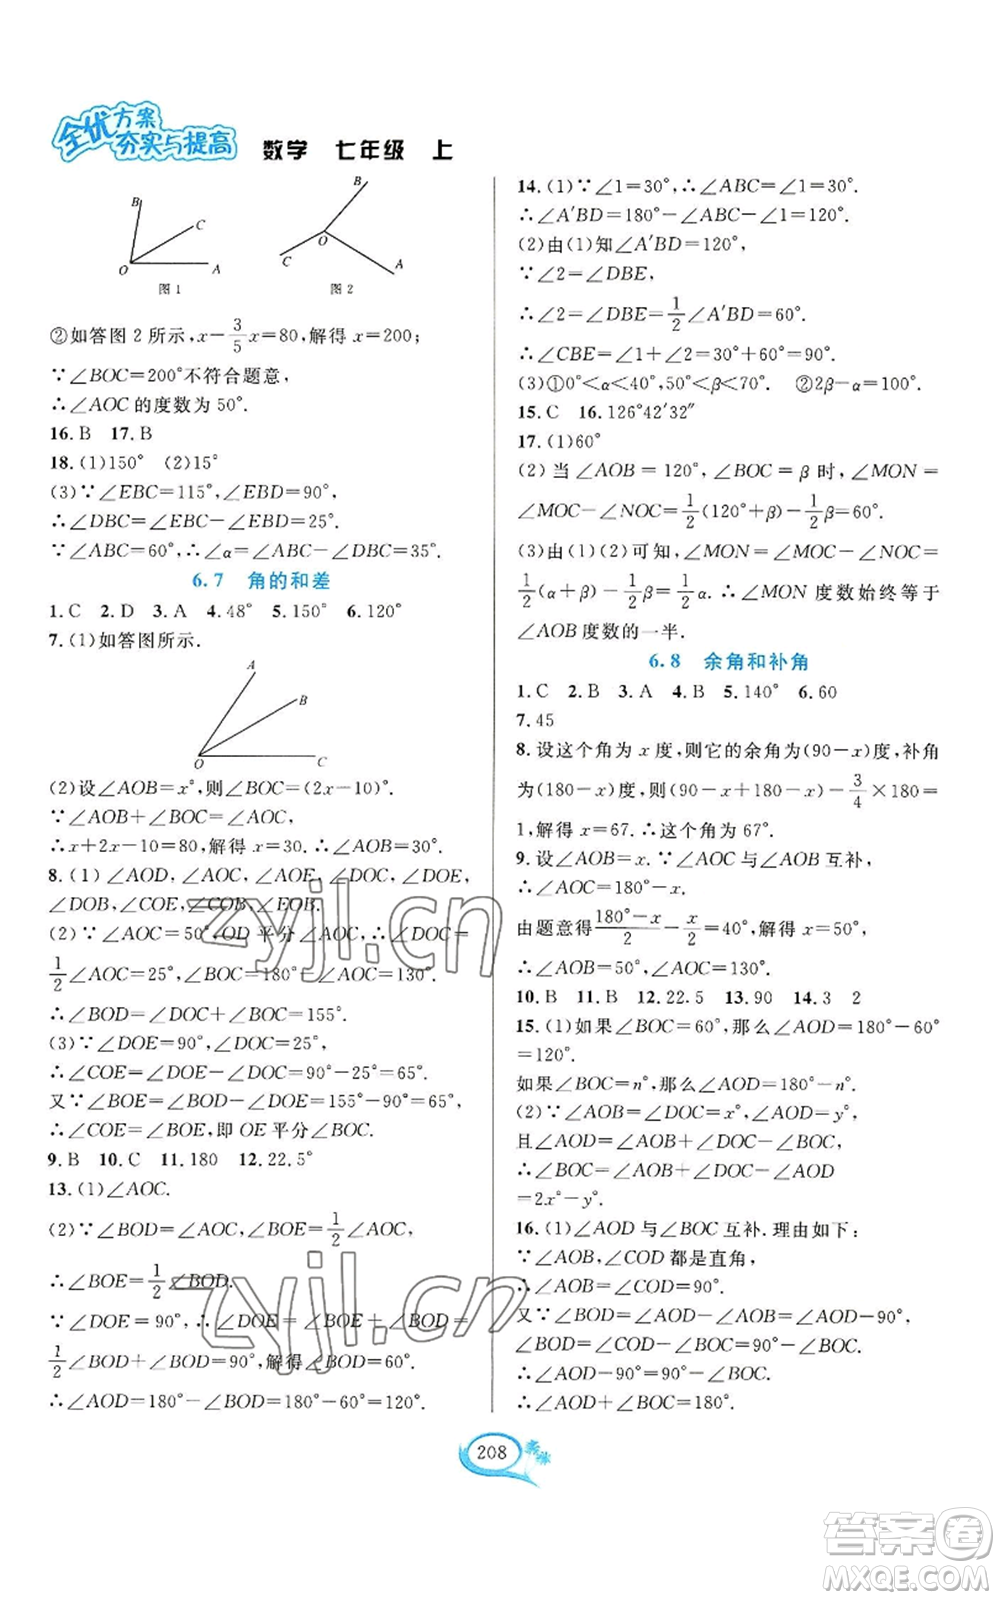 全优方案
夯实与提高
数学 七年级 上
B
C
O
A
图1
B
O
C
A
图2
②如答图2所示,x-3/5x=80,解得x=200;
∵∠BOC=200°不符合题意,
∴∠AOC的度数为50°.
16.B 17.B
18.(1)150° (2)15°
(3)∵∠EBC=115°,∠EBD=90°,
∴∠DBC=∠EBC-∠EBD=25°.
∵∠ABC=60°,∴∠α=∠ABC-∠DBC=35°.
6.7 角的和差
1.C 2.D 3.A 4.48° 5.150° 6.120°
7.(1)如答图所示.
A
B
O
C
(2)设∠AOB=x°,则∠BOC=(2x-10)°.
∵∠AOB+∠BOC=∠AOC,
∴x+2x-10=80,解得x=30.∴∠AOB=30°.
8.(1)∠AOD,∠AOC,∠AOE,∠DOC,∠DOE,
∠DOB,∠COE,∠COB,∠EOB.
(2)∵∠AOC=50°,OD平分∠AOC,∴∠DOC=
1/2∠AOC=25°,∠BOC=180°-∠AOC=130°.
∴∠BOD=∠DOC+∠BOC=155°.
(3)∵∠DOE=90°,∠DOC=25°,
∴∠COE=∠DOE-∠DOC=90°-25°=65°.
又∵∠BOE=∠BOD-∠DOE=155°-90°=65°,
∴∠COE=∠BOE,即OE平分∠BOC.
9.B 10.C 11.180 12.22.5°
13.(1)∠AOC.
(2)∵∠BOD=∠AOC,∠BOE=1/2∠AOC,
∴∠BOE=1/2∠BOD.
∵∠DOE=90°,∴∠DOE=∠BOE+∠BOD=
1/2∠BOD+∠BOD=90°,解得∠BOD=60°.
∴∠AOD=180°-∠BOD=180°-60°=120°.
14.(1)∵∠1=30°,∴∠ABC=∠1=30°.
∴∠A′BD=180°-∠ABC-∠1=120°.
(2)由(1)知∠A′BD=120°,
∵∠2=∠DBE,
∴∠2=∠DBE=1/2∠A′BD=60°.
∴∠CBE=∠1+∠2=30°+60°=90°.
(3)①0°<α<40°,50°<β<70°. ②2β-α=100°.
15.C 16.126°42′32″
17.(1)60°
(2)当∠AOB=120°,∠BOC=β时,∠MON=
∠MOC-∠NOC=1/2(120°+β)-1/2β=60°.
(3)由(1)(2)可知,∠MON=∠MOC-∠NOC=
1/2(α+β)-1/2β=1/2α.∴∠MON度数始终等于
∠AOB度数的一半.
6.8 余角和补角
1.C 2.B 3.A 4.B 5.140° 6.60
7.45
8.设这个角为x度,则它的余角为(90-x)度,补角
为(180-x)度,则(90-x+180-x)-3/4×180=
1,解得x=67.∴这个角为67°.
9.设∠AOB=x.∵∠AOC与∠AOB互补,
∴∠AOC=180°-x.
由题意得(180°-x)/2-x/2=40°,解得x=50°,
∴∠AOB=50°,∠AOC=130°.
10.B 11.B 12.22.5 13.90 14.3 2
15.(1)如果∠BOC=60°,那么∠AOD=180°-60°
=120°.
如果∠BOC=n°,那么∠AOD=180°-n°.
(2)∵∠AOB=∠DOC=x°,∠AOD=y°,
且∠AOD=∠AOB+∠DOC-∠BOC,
∴∠BOC=∠AOB+∠DOC-∠AOD
=2x°-y°.
16.(1)∠AOD与∠BOC互补.理由如下:
∵∠AOB,∠COD都是直角,
∴∠AOB=∠COD=90°.
又∵∠BOD=∠AOD-∠AOB=∠AOD-90°,
∠BOD=∠COD-∠BOC=90°-∠BOC,
∴∠AOD-90°=90°-∠BOC.
∴∠AOD+∠BOC=180°.
208
zyjl.cn
zyjl.cn
答案卷
MXQE.COM